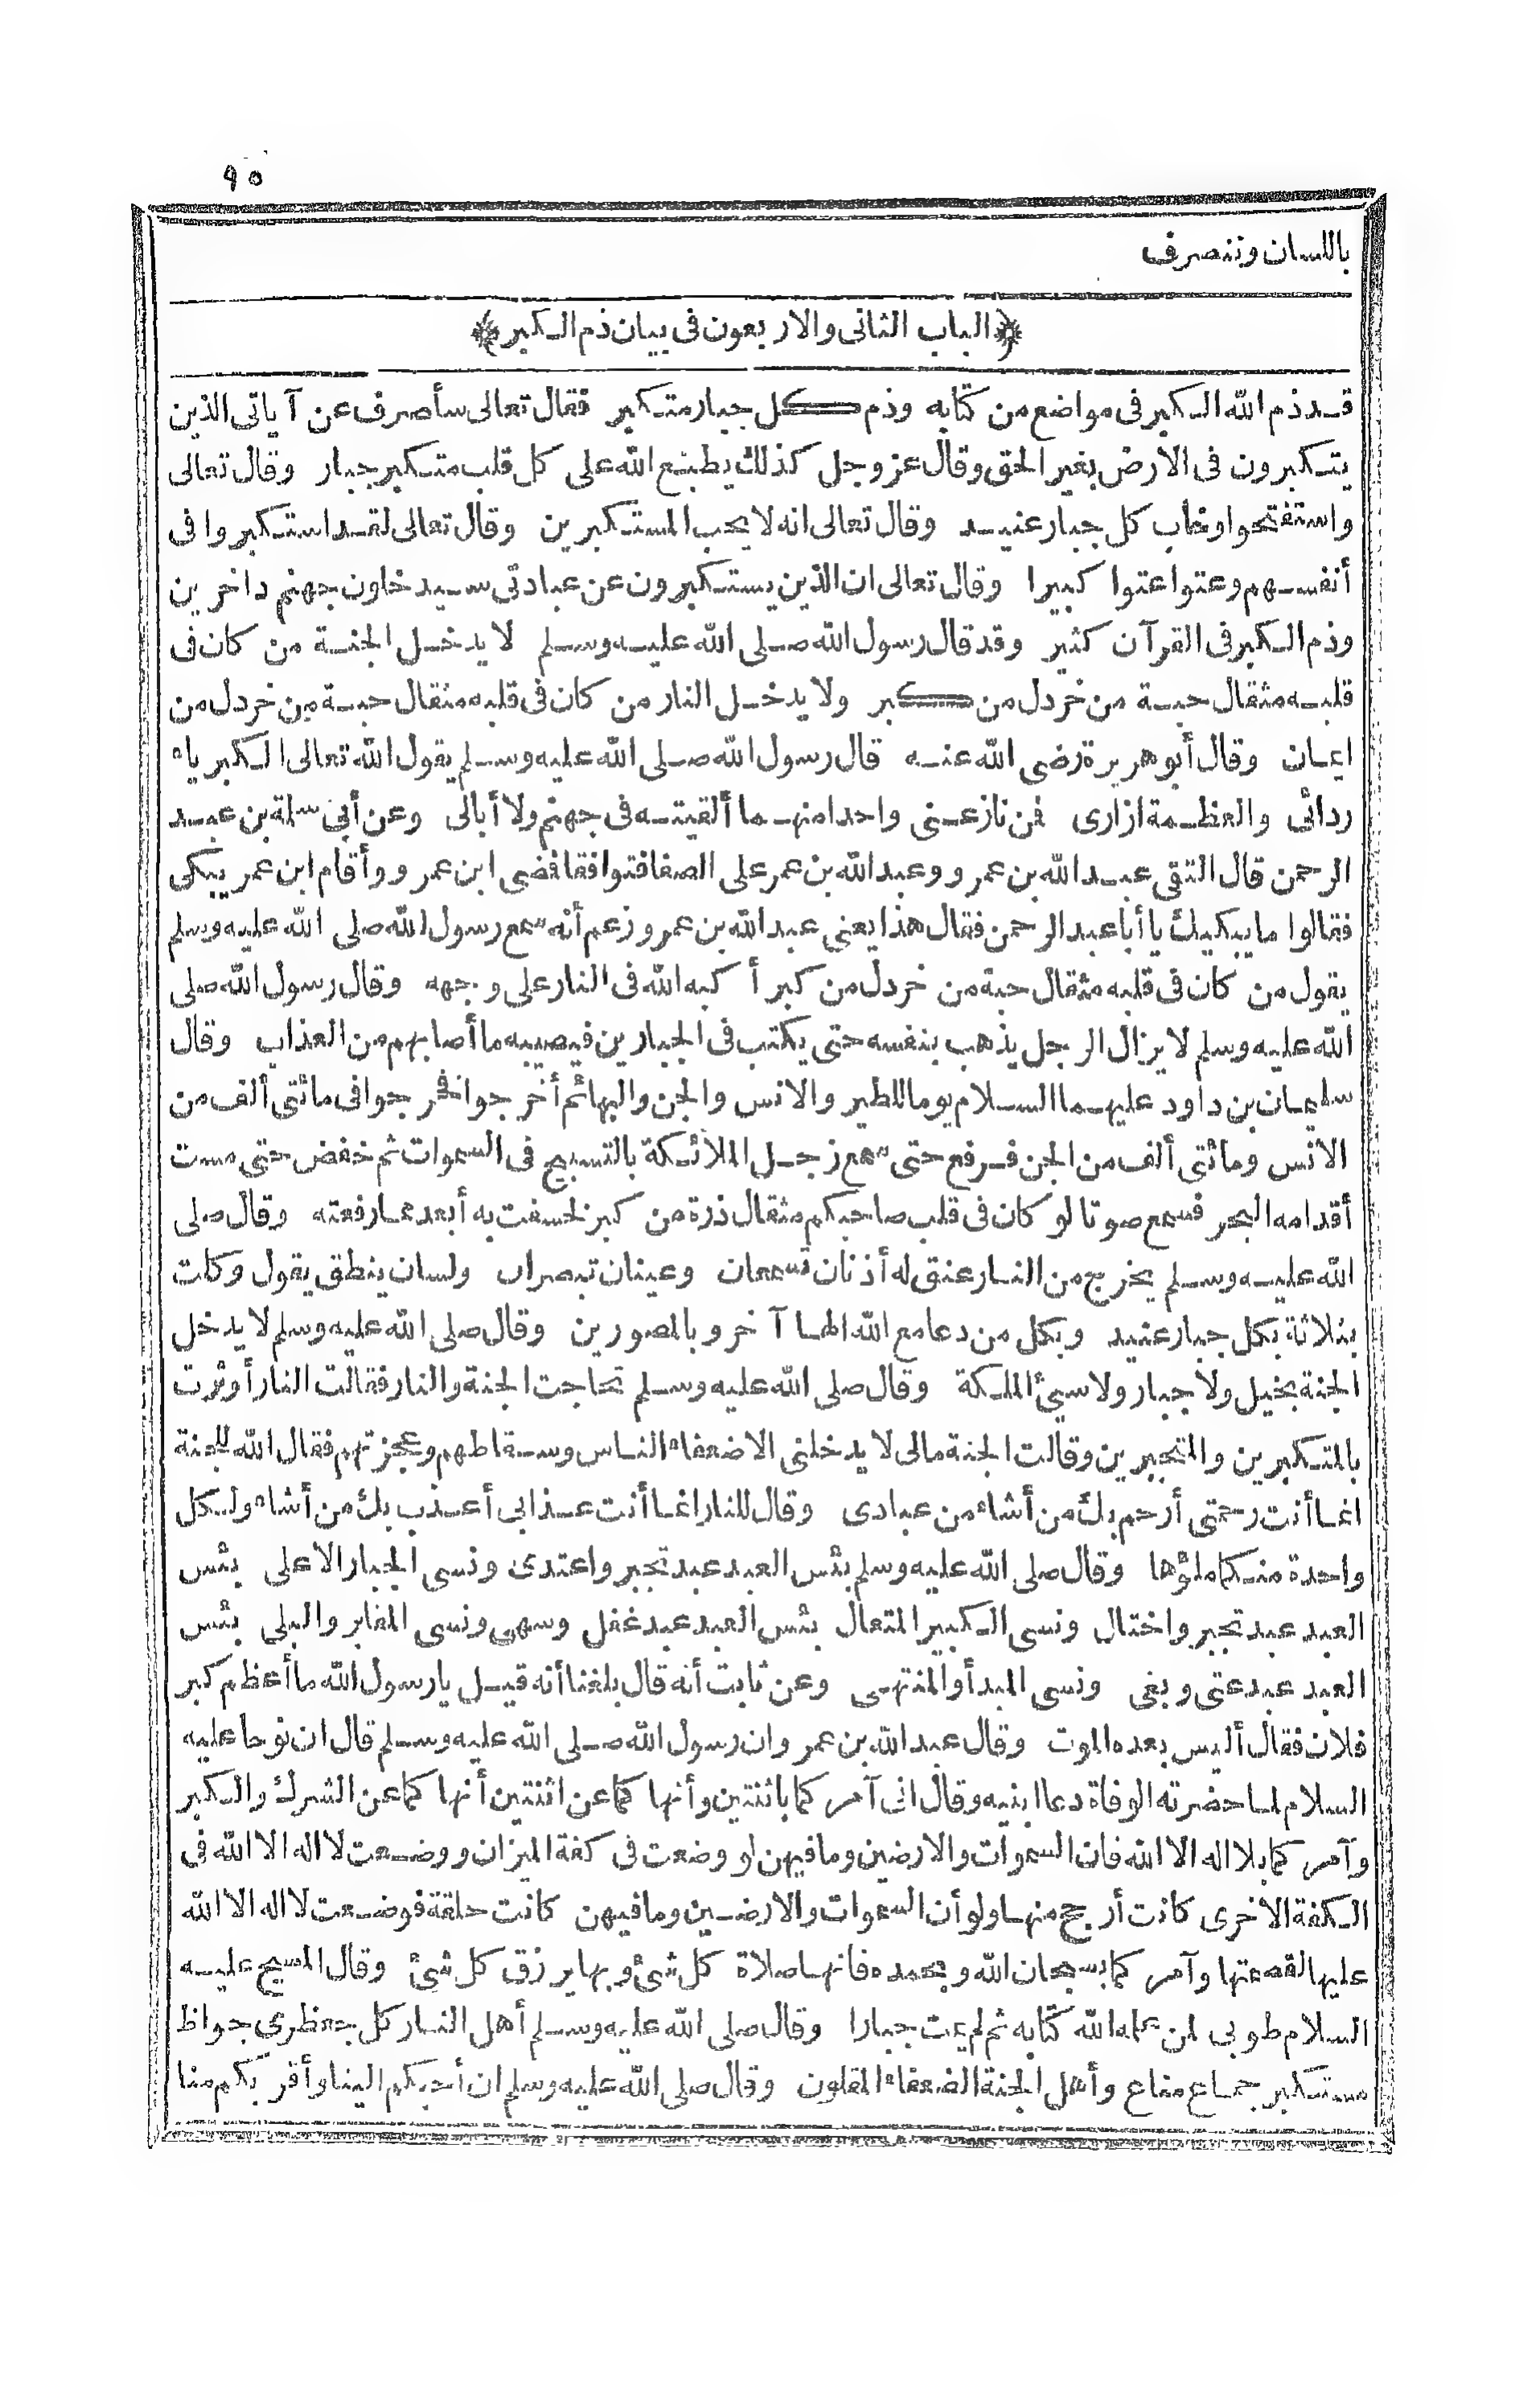 ٩٥
باللسان وننصرف
﴿الباب الثانى والاربعون فى بيان ذم الكبر﴾
قد ذم الله الكبر فى مواضع من كتابه وذم كل جبار متكبر فقال تعالى سأصرف عن آياتى الذين
يتكبرون فى الارض بغير الحق وقال عز وجل كذلك يطبع الله على كل قلب متكبر جبار وقال تعالى
واستفتحوا وخاب كل جبار عنيد وقال تعالى انه لا يحب المستكبرين وقال تعالى لقد استكبروا فى
أنفسهم وعتوا عتوا كبيرا وقال تعالى ان الذين يستكبرون عن عبادتى سيدخلون جهنم داخرين
وذم الكبر فى القرآن كثير وقد قال رسول الله صلى الله عليه وسلم لا يدخل الجنة من كان فى
قلبه مثقال حبة من خردل من كبر ولا يدخل النار من كان فى قلبه مثقال حبة من خردل من
ايمان وقال أبو هريرة رضى الله عنه قال رسول الله صلى الله عليه وسلم يقول الله تعالى الكبرياء
ردائى والعظمة ازارى فمن نازعنى واحدا منهما ألقيته فى جهنم ولا أبالى وعن أبى سلمة بن عبد
الرحمن قال التقى عبد الله بن عمرو وعبد الله بن عمر على الصفا فتوافقا فضى ابن عمرو وأقام ابن عمر يبكى
فقالوا ما يبكيك يا أبا عبد الرحمن فقال هذا يعنى عبد الله بن عمرو زعم أنه سمع رسول الله صلى الله عليه وسلم
يقول من كان فى قلبه مثقال حبة من خردل من كبر أكبه الله فى النار على وجهه وقال رسول الله صلى
الله عليه وسلم لا يزال الرجل يذهب بنفسه حتى يكتب فى الجبارين فيصيبه ما أصابهم من العذاب وقال
سليمان بن داود عليهما السلام يوما للطير والانس والجن والبهائم أخرجوا فخرجوا فى مائتى ألف من
الانس ومائتى ألف من الجن فرفع حتى سمع زجل الملائكة بالتسبيح فى السموات ثم خفض حتى مست
أقدامه البحر فسمع صوتا لو كان فى قلب صاحبكم مثقال ذرة من كبر لخسفت به أبعد مما رفعته وقال صلى
الله عليه وسلم يخرج من النار عنق له أذنان تسمعان وعينان تبصران ولسان ينطق يقول وكلت
بثلاثة بكل جبار عنيد وبكل من دعا مع الله الها آخر وبالمصورين وقال صلى الله عليه وسلم لا يدخل
الجنة بخيل ولا جبار ولا سيئ الملكة وقال صلى الله عليه وسلم تحاجت الجنة والنار فقالت النار أوثرت
بالمتكبرين والمتجبرين وقالت الجنة مالى لا يدخلنى الا ضعفاء الناس وسقاطهم وعجزتهم فقال الله للجنة
انما أنت رحمتى أرحم بك من أشاء من عبادى وقال للنار انما أنت عذابى أعذب بك من أشاء ولكل
واحدة منكما ملؤها وقال صلى الله عليه وسلم بئس العبد عبد تجبر واعتدى ونسى الجبار الاعلى بئس
العبد عبد تجبر واختال ونسى الكبير المتعال بئس العبد عبد غفل وسهى ونسى المقابر والبلى بئس
العبد عبد عتى وبغى ونسى المبدأ والمنتهى وعن ثابت أنه قال بلغنا أنه قيل يا رسول الله ما أعظم كبر
فلان فقال أليس بعده الموت وقال عبد الله بن عمرو ان رسول الله صلى الله عليه وسلم قال ان نوحا عليه
السلام لما حضرته الوفاة دعا ابنيه وقال انى آمركما باثنتين وأنهاكما عن اثنتين أنهاكما عن الشرك والكبر
وآمركما بلا اله الا الله فان السموات والارضين وما فيهن لو وضعت فى كفة الميزان ووضعت لا اله الا الله فى
الكفة الاخرى كانت أرجح منها ولو أن السموات والارضين وما فيهن كانت حلقة فوضعت لا اله الا الله
عليها لقصمتها وآمركما بسبحان الله وبحمده فانها صلاة كل شئ وبها يرزق كل شئ وقال المسيح عليه
السلام طوبى لمن علمه الله كتابه ثم لم يمت جبارا وقال صلى الله عليه وسلم أهل النار كل جعظرى جواظ
مستكبر جماع مناع وأهل الجنة الضعفاء المقلون وقال صلى الله عليه وسلم ان أحبكم الينا وأقربكم منا